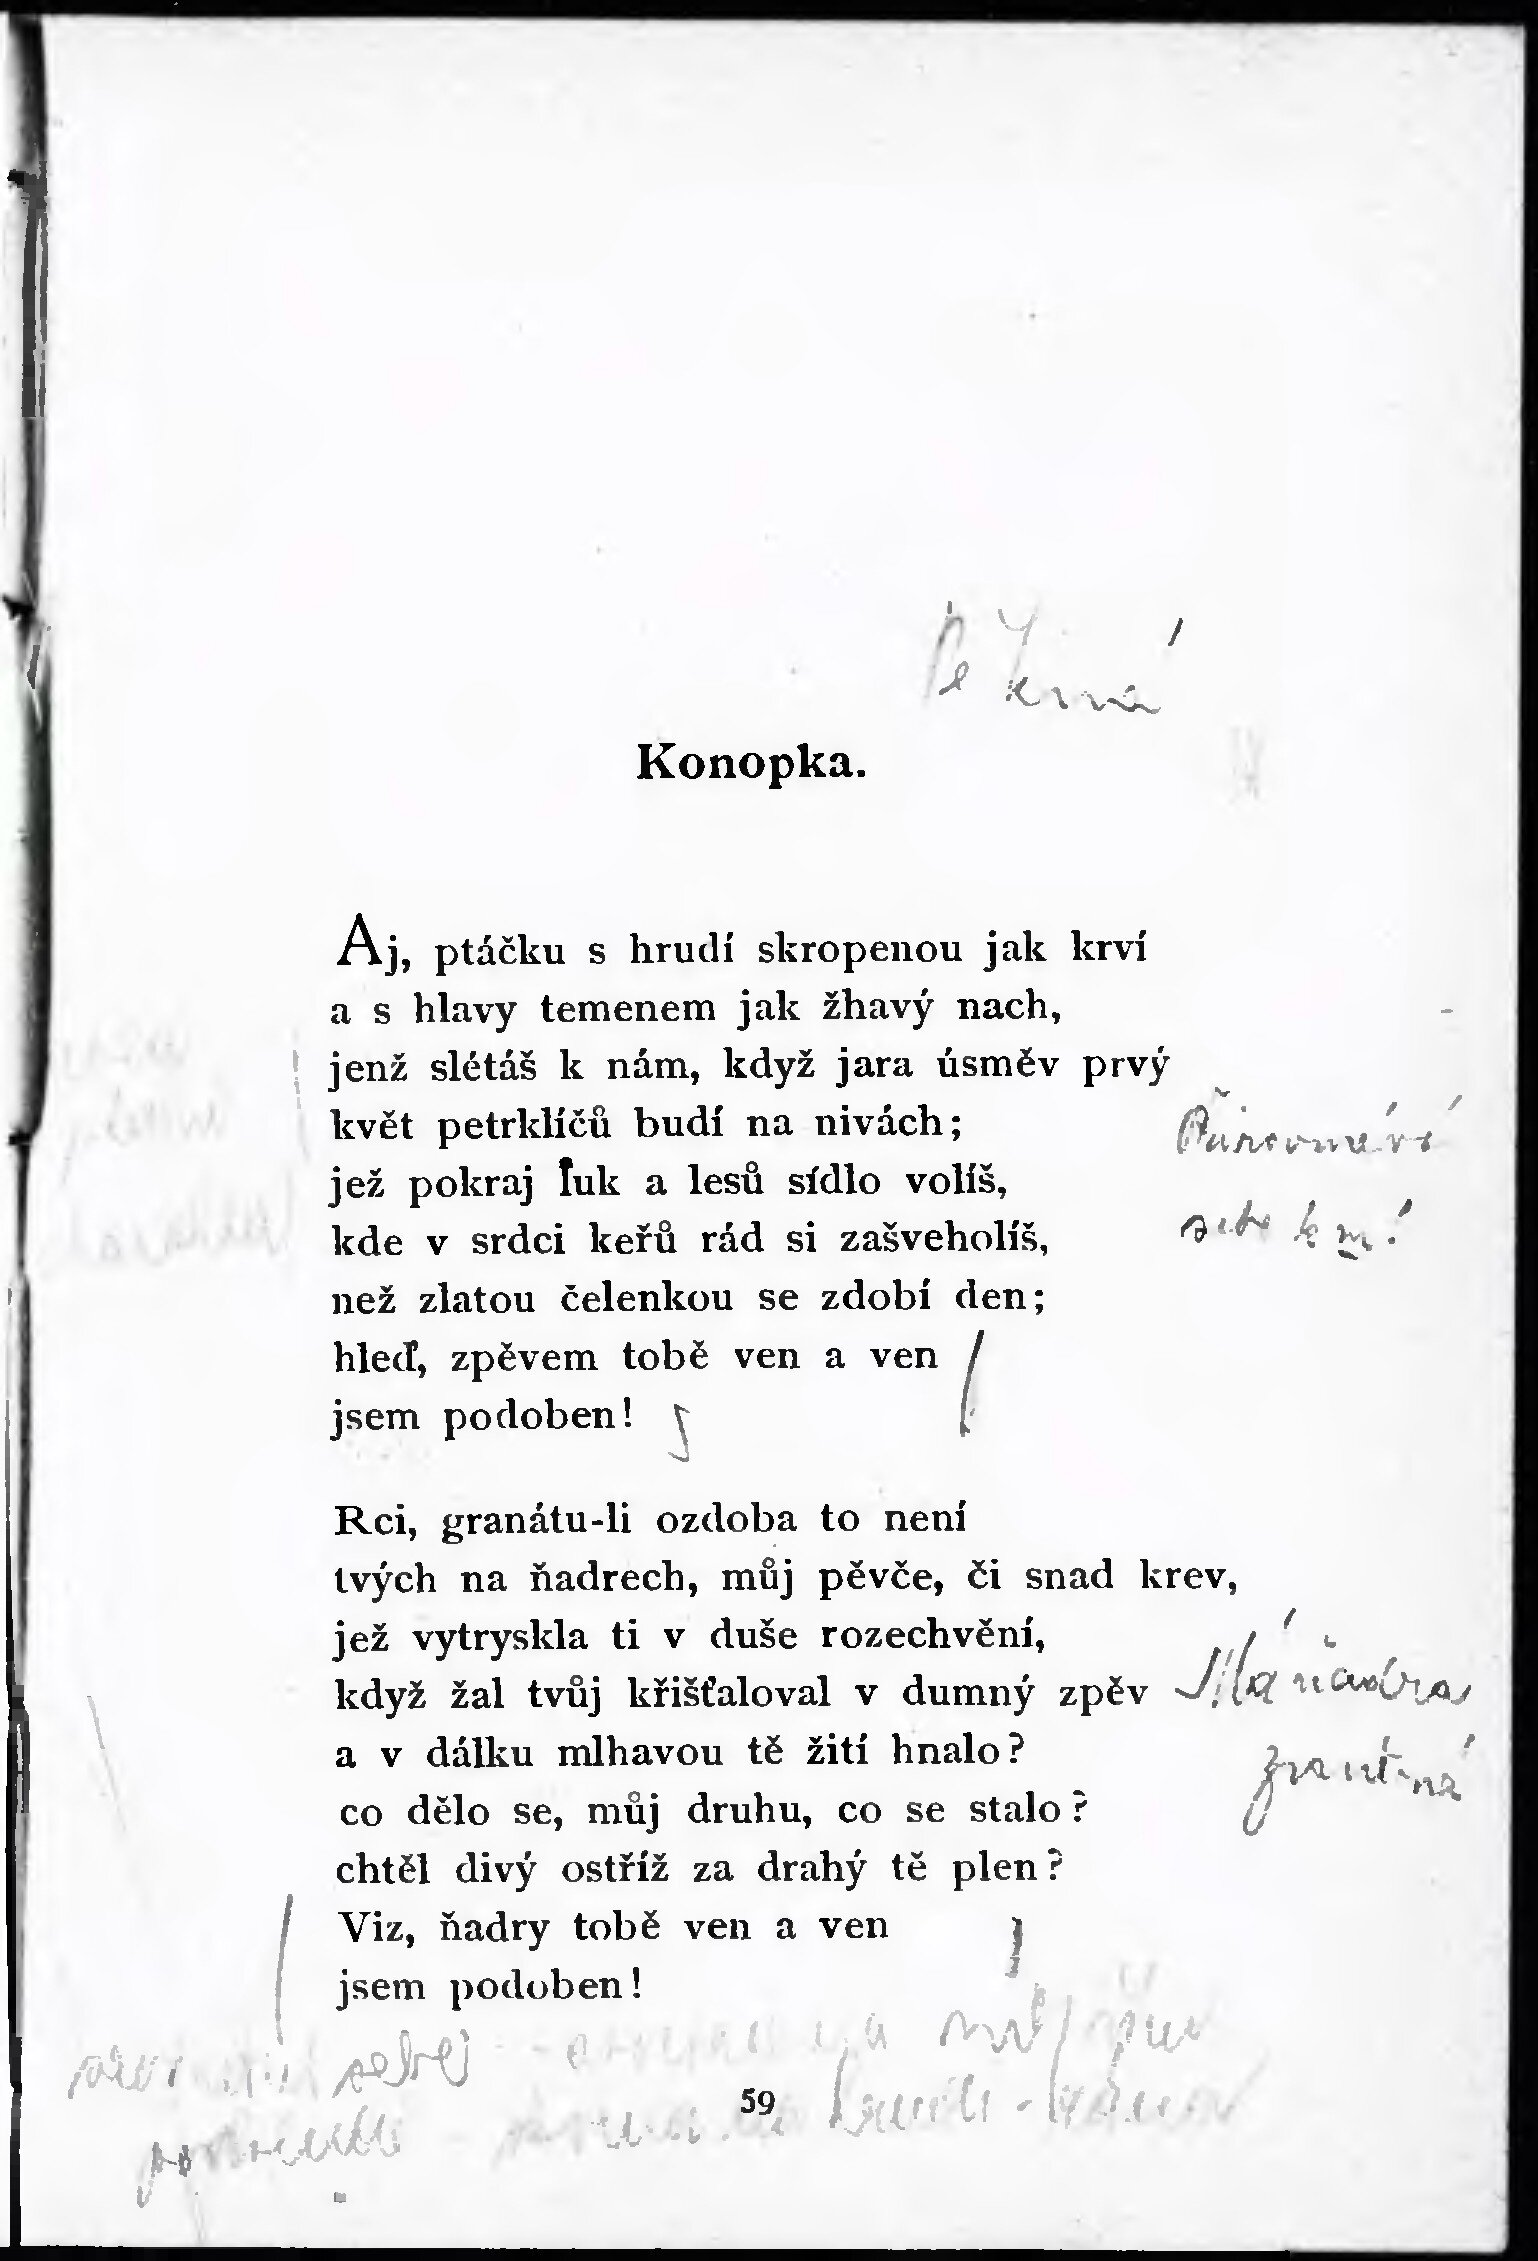 Pěkná
Konopka.
Aj, ptáčku s hrudí skropenou jak krví
a s hlavy temenem jak žhavý nach,
jenž slétáš k nám, když jara úsměv prvý
květ petrklíčů budí na nivách;
jež pokraj luk a lesů sídlo volíš,
kde v srdci keřů rád si zašveholíš,
než zlatou čelenkou se zdobí den;
hleď, zpěvem tobě ven a ven
jsem podoben!
Přirovnání
sebe k
Rci, granátu-li ozdoba to není
tvých na ňadrech, můj pěvče, či snad krev,
jež vytryskla ti v duše rozechvění,
když žal tvůj křišťaloval v dumný zpěv
a v dálku mlhavou tě žití hnalo?
co dělo se, můj druhu, co se stalo?
chtěl divý ostříž za drahý tě plen?
Viz, ňadry tobě ven a ven
jsem podoben!
Má ňadra
59